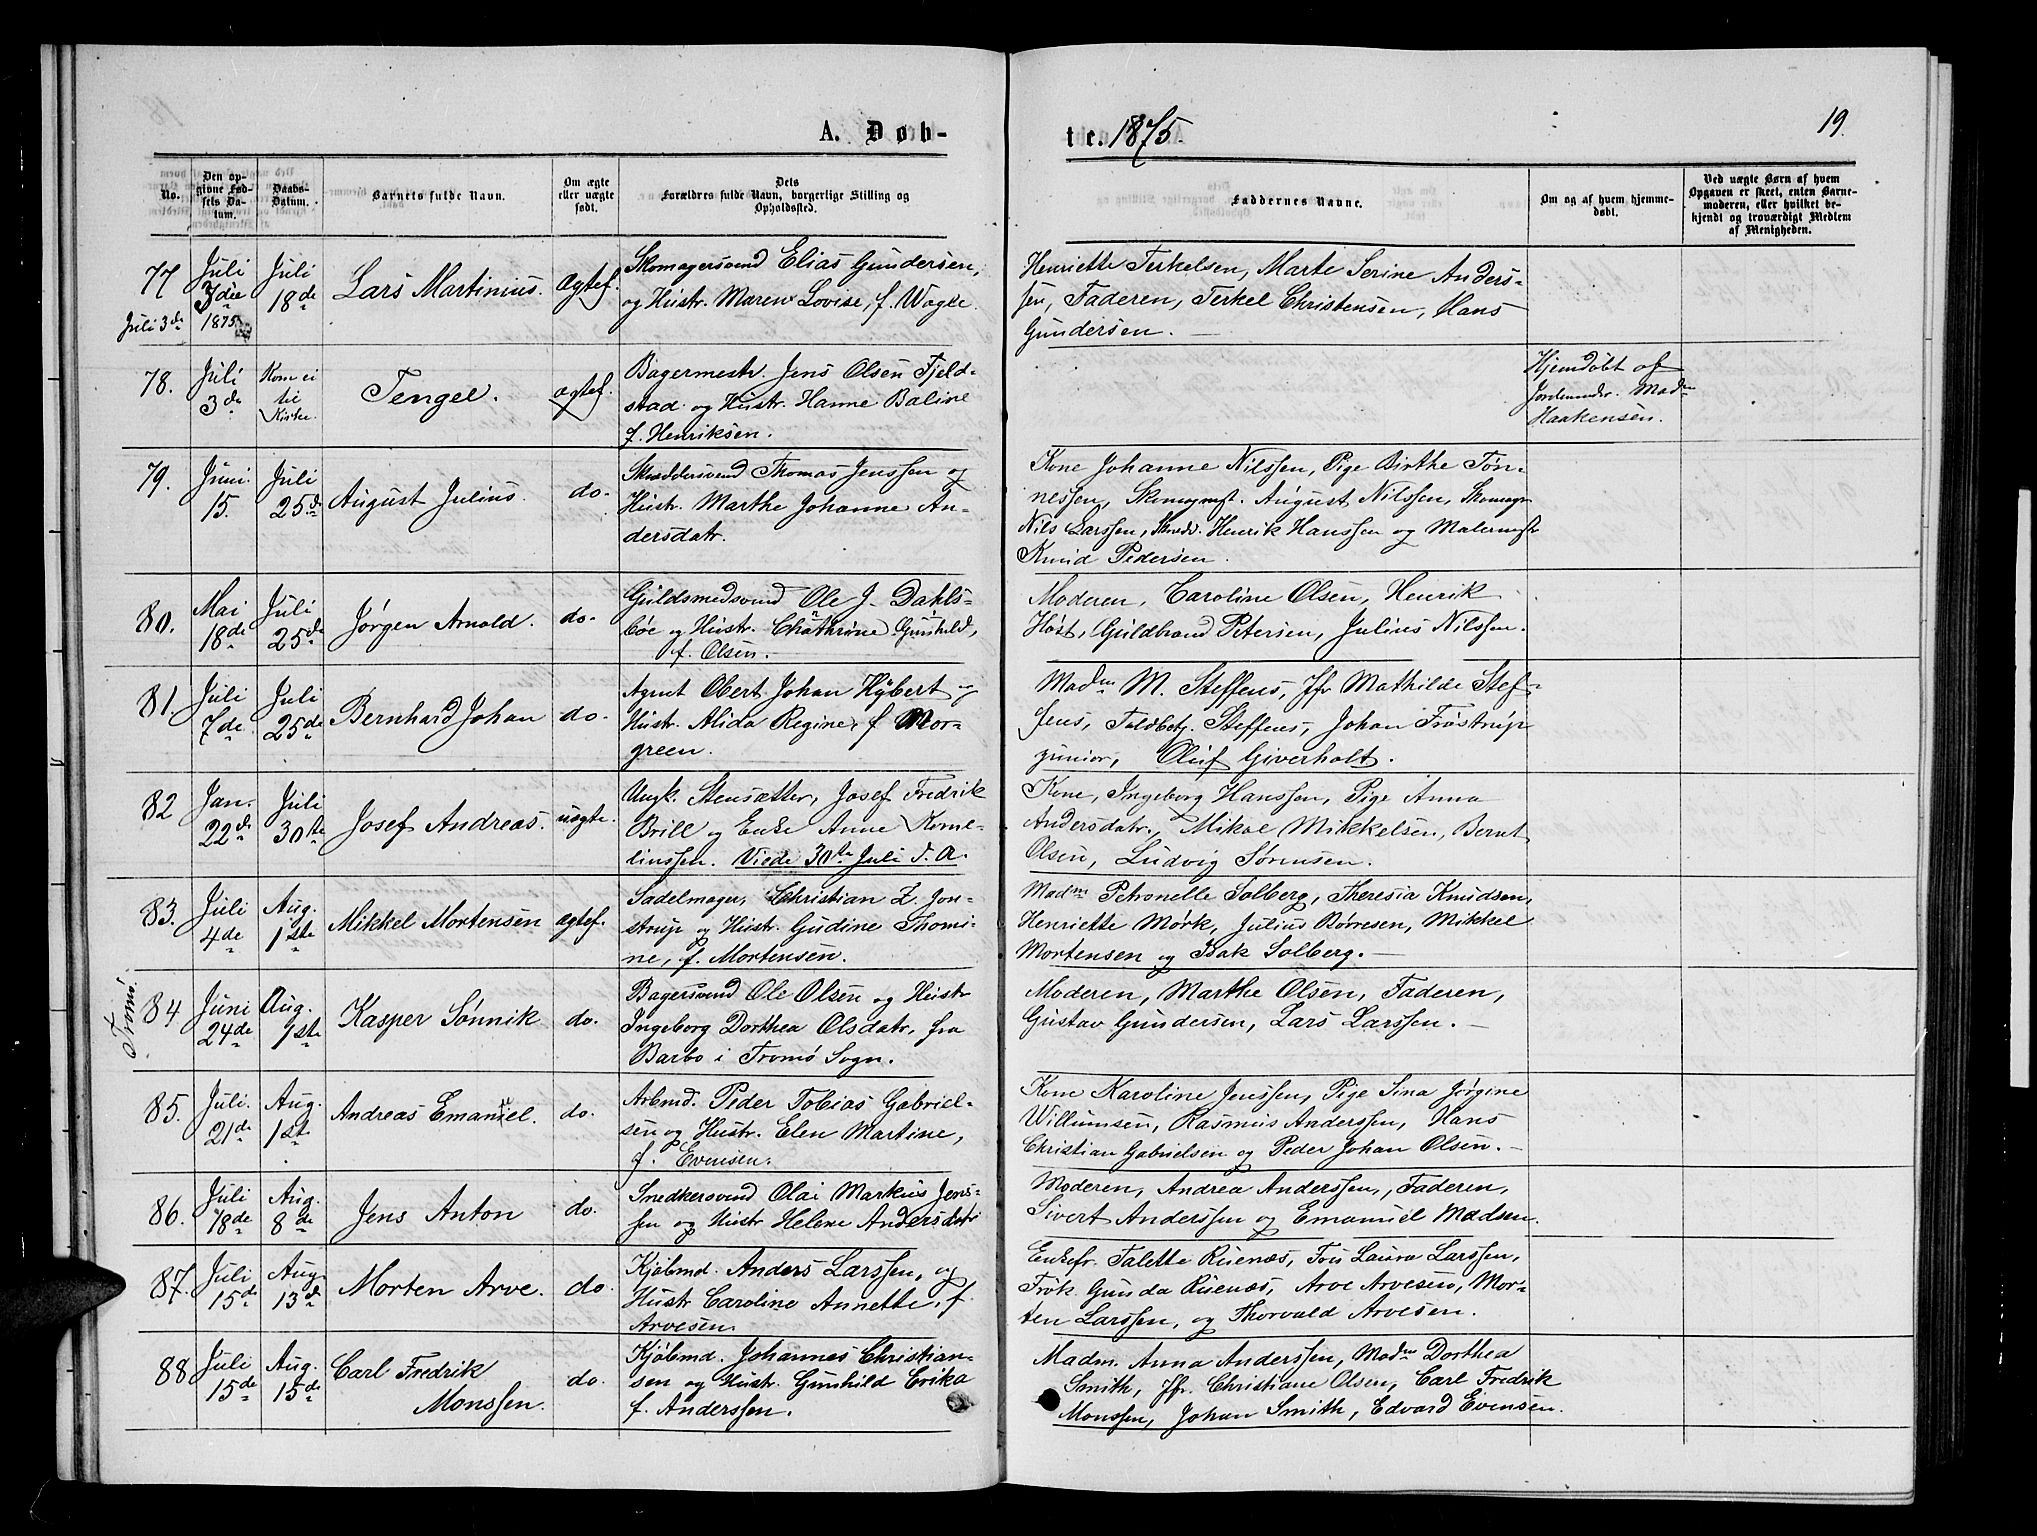 A. Døb-
te. 1875.
19.
No.
Den op-
givne Fød-
sels Da-
tum.
Daabs-
Datum.
Barnets fulde Navn.
Om ægte
eller uægte
født.
Dets
Forældres fulde Navn, borgerlige Stilling og
Opholdssted.
Faddernes Navne.
Om og af hvem hjemme-
døbt.
Ved uægte Børn af hvem
Opgaven er skeet, enten Barne-
moderen, eller hvilket be-
kjendt og troværdigt Medlem
af Menigheden.
77
Juli 3de
Juli
3die
1875
Juli
18de
Lars Martinius.
Ægtef.
Skomagersvend Elias Gundersen,
og Hustr. Maren Lovise, f. Wagle.
Henriette Terkelsen, Marte Serine Anders-
sen, Faderen, Terkel Christensen, Hans
Gundersen.
78.
Juli
3de
Kom ei
til
Kirke.
Tengel.
ægtef.
Bagermestr. Jens Olsen Fjeld-
stad og Hustr. Hanne Baline
f. Henriksen.
Hjemdøbt af
Jordemodr. Madm
Haakensen.
79.
Juni
15.
Juli
25de
August Julius.
do.
Skræddersvend Thomas Jenssen og
Hustr. Marthe Johanne An-
dersdatr.
Kone Johanne Nilssen, Pige Birthe Tøn-
nessen, Skomagrst. August Nilssen, Skomagr
Nils Larssen, Skrædr. Henrik Hanssen og Malermstr
Knud Pedersen.
80.
Mai
18de
Juli
25de
Jørgen Arnold.
do.
Guldsmedsvend Ole J. Dahls-
bøe og Hustr. Chathrine Gunhild,
f. Olsen.
Moderen, Caroline Olsen, Henrik
Høst, Guldbrand Petersen, Julius Nilssen.
81.
Juli
7de
Juli
25de
Bernhard Johan
do.
Agent Obert Johan Hybert og
Hustr. Alida Regine, f. Mor-
green.
Madm M. Steffens, Jfr Mathilde Stef-
fens, Toldbetj. Steffens, Johan Frøstrup
junior, Oluf Giverholt.
82
Jan.
22de
Juli
30te
Josef Andreas.
uægte.
Ungk. Stensætter, Josef Fredrik
Brill og Enke Anne Korne-
linssen. Viede 30te Juli d. A.
Kone, Ingeborg Hanssen, Pige Anna
Andersdatr., Mikal Mikkelsen, Bernt
Olsen, Ludvig Sørensen.
83.
Juli
4de
Aug.
1ste
Mikkel Mortensen
ægtef.
Sadelmager, Christian Z. Jon-
strup og Hustr. Gudine Thomi-
ne, f. Mortensen.
Madm Petronelle Solberg, Theresia Knudsen,
Henriette Mørk, Julius Børresen, Mikkel
Mortensen og Isak Solberg.
Tromø.
84
Juni
24de
Aug.
1ste
Kasper Sønnik
do.
Bagersvend Ole Olsen og Hustr
Ingeborg Dorthea Olsdatr, fra
Barbo i Tromø Sogn.
Moderen, Marthe Olsen, Faderen,
Gustav Gundersen, Lars Larssen.
85.
Juli.
21de
Aug.
1st
Andreas Emanuel.
do.
Arbmd. Peder Tobias Gabriel-
sen og Hustr. Elen Martine,
f. Evensen.
Kone Karoline Jenssen, Pige Sina Jørgine
Willumsen, Rasmus Anderssen, Hans
Christian Gabrielsen og Peder Johan Olsen.
86.
Juli
18de
Aug.
8de
Jens Anton
do.
Snedkersvend Olai Markus Jens-
sen og Hustr Helene Andersdatr
Moderen, Andrea Anderssen, Faderen,
Sivert Anderssen og Emanuel Madsen.
87.
Juli
15de
Aug
13de
Morten Arve.
do.
Kjøbmd. Anders Larssen, og
Hustr Caroline Annette, f.
Arvesen.
Enkefr. Talette Ruenæs, Laura Larssen,
Frøk. Gunda Ruenæs, Arve Arvesen, Mor-
ten Larssen, og Thorvald Arvesen.
88
Juli
15de
Aug.
15de
Carl Fredrik
Monssen.
do.
Kjøbmd. Johannes Christian-
sen og Hustr. Gunhild Erika
f. Anderssen.
Madm. Anna Anderssen, Madm Dorthea
Smith, Jfr. Christiane Olsen, Carl Fredrik
Monssen, Johan Smith, Edvard Evensen.